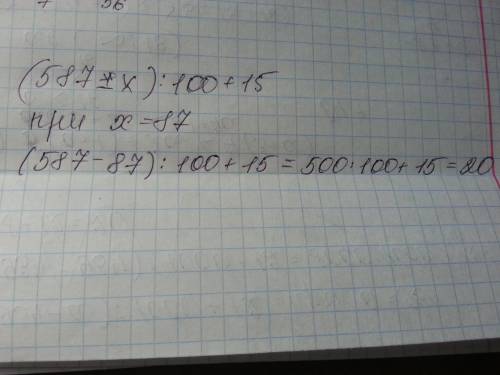 56
(587 ± x) : 100 + 15
при x = 87
(587 - 87) : 100 + 15 = 500 : 100 + 15 = 20